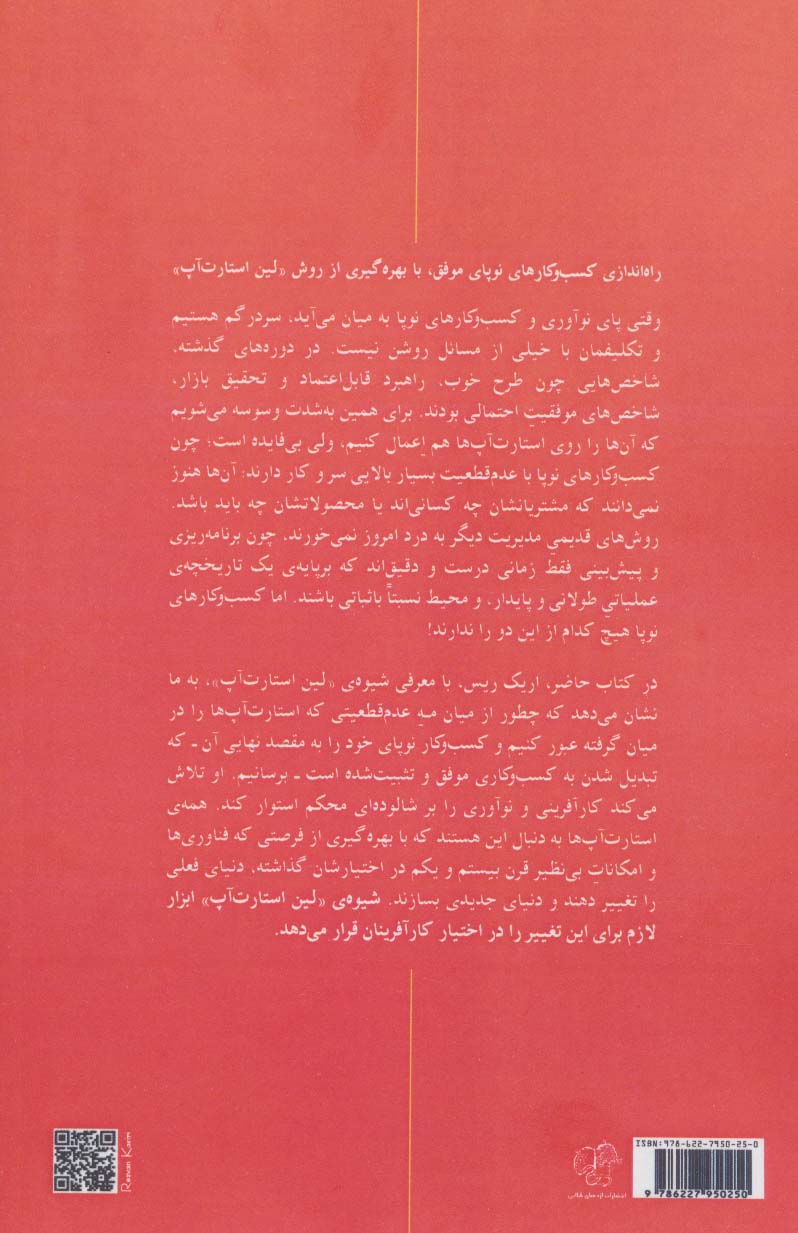 راه‌اندازی کسب‌وکارهای نوپای موفق، با بهره‌گیری از روش «لین استارت‌آپ»
وقتی پای نوآوری و کسب‌وکارهای نوپا به میان می‌آید، سردرگم هستیم
و تکلیفمان با خیلی از مسائل روشن نیست. در دوره‌های گذشته،
شاخص‌هایی چون طرح خوب، راهبرد قابل‌اعتماد و تحقیق بازار،
شاخص‌های موفقیتِ احتمالی بودند. برای همین به‌شدت وسوسه می‌شویم
که آن‌ها را روی استارت‌آپ‌ها هم اِعمال کنیم، ولی بی‌فایده است؛ چون
کسب‌وکارهای نوپا با عدم‌قطعیت بسیار بالایی سر و کار دارند: آن‌ها هنوز
نمی‌دانند که مشتریانشان چه کسانی‌اند یا محصولاتشان چه باید باشد.
روش‌های قدیمیِ مدیریت دیگر به درد امروز نمی‌خورند، چون برنامه‌ریزی
و پیش‌بینی فقط زمانی درست و دقیق‌اند که برپایه‌ی یک تاریخچه‌ی
عملیاتیِ طولانی و پایدار، و محیط نسبتاً باثباتی باشند. اما کسب‌وکارهای
نوپا هیچ کدام از این دو را ندارند!
در کتاب حاضر، اریک ریس، با معرفی شیوه‌ی «لین استارت‌آپ»، به ما
نشان می‌دهد که چطور از میان مهِ عدم‌قطعیتی که استارت‌آپ‌ها را در
میان گرفته عبور کنیم و کسب‌وکار نوپای خود را به مقصد نهایی آن ـ که
تبدیل شدن به کسب‌وکاری موفق و تثبیت‌شده است ـ برسانیم. او تلاش
می‌کند کارآفرینی و نوآوری را بر شالوده‌ای محکم استوار کند. همه‌ی
استارت‌آپ‌ها به دنبال این هستند که با بهره‌گیری از فرصتی که فناوری‌ها
و امکاناتِ بی‌نظیر قرن بیستم و یکم در اختیارشان گذاشته، دنیای فعلی
را تغییر دهند و دنیای جدیدی بسازند. شیوه‌ی «لین استارت‌آپ» ابزار
لازم برای این تغییر را در اختیار کارآفرینان قرار می‌دهد.
Rezvan Karimi
انتشارات اژدهای طلایی
ISBN: 978-622-7950-25-0
9 786227 950250